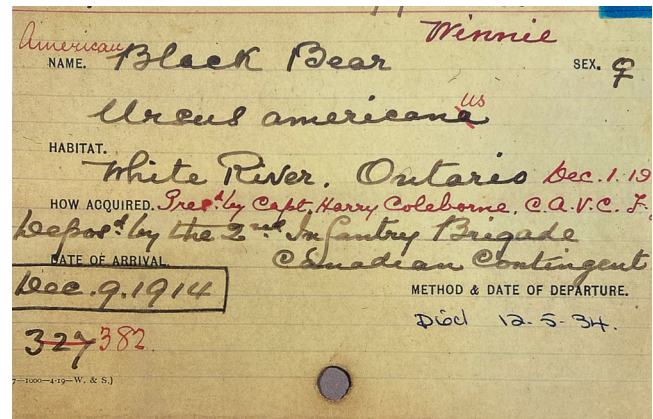 Winnie
American
NAME. Black Bear SEX. ♀
Ursus americanaus
HABITAT.
White River. Ontario Dec. 1. 19
HOW ACQUIRED. Pres.d by Capt. Harry Coleborne, C.A.V.C. F.
Depos.d by the 2nd Infantry Brigade
DATE OF ARRIVAL. Canadian Contingent
Dec. 9. 1914
METHOD & DATE OF DEPARTURE.
Died 12-5-34.
327 382.
7—1000—4-19—W. & S.)